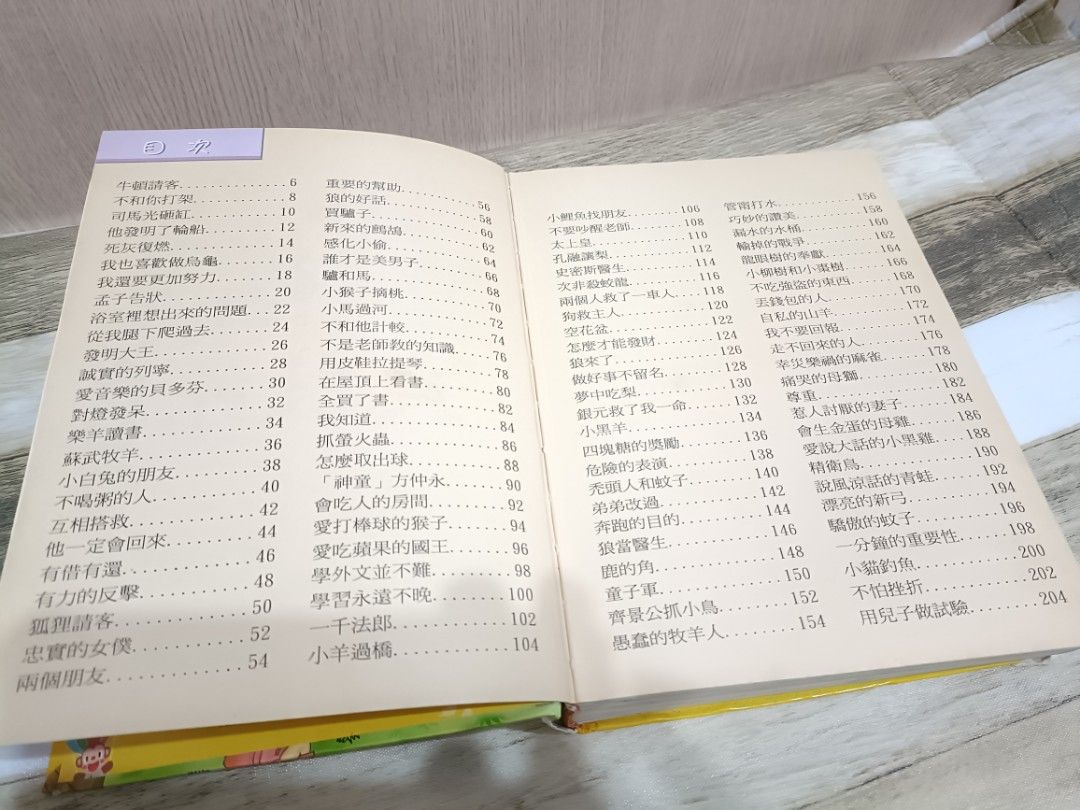 目次
牛頓請客............6
不和你打架............8
司馬光砸缸............10
他發明了輪船............12
死灰復燃............14
我也喜歡做烏龜............16
我還要更加努力............18
孟子告狀............20
浴室裡想出來的問題...22
從我腿下爬過去............24
發明大王............26
誠實的列寧............28
愛音樂的貝多芬............30
對燈發呆............32
樂羊讀書............34
蘇武牧羊............36
小白兔的朋友............38
不喝粥的人............40
互相搭救............42
他一定會回來............44
有借有還............46
有力的反擊............48
狐狸請客............50
忠實的女僕............52
兩個朋友............54
重要的幫助............56
狼的好話............58
買驢子............60
新來的鷓鴣............62
感化小偷............64
誰才是美男子............66
驢和馬............68
小猴子摘桃............70
小馬過河............72
不和他計較............74
不是老師教的知識...76
用皮鞋拉提琴............78
在屋頂上看書............80
全買了書............82
我知道............84
抓螢火蟲............86
怎麼取出球............88
「神童」方仲永............90
會吃人的房間............92
愛打棒球的猴子............94
愛吃蘋果的國王............96
學外文並不難............98
學習永遠不晚............100
一千法郎............102
小羊過橋............104
小鯉魚找朋友............106
不要吵醒老師............108
太上皇............110
孔融讓梨............112
史密斯醫生............114
次非殺蛟龍............116
兩個人救了一車人...118
狗救主人............120
空花盆............122
怎麼才能發財............124
狼來了............126
做好事不留名............128
夢中吃梨............130
銀元救了我一命............132
小黑羊............134
四塊糖的獎勵............136
危險的表演............138
禿頭人和蚊子............140
弟弟改過............142
奔跑的目的............144
狼當醫生............146
鹿的角............148
童子軍............150
齊景公抓小鳥............152
愚蠢的牧羊人............154
管甯打水............156
巧妙的讚美............158
漏水的水桶............160
輸掉的戰爭............162
龍眼樹的奉獻............164
小柳樹和小棗樹............166
不吃強盜的東西............168
丟錢包的人............170
自私的山羊............172
我不要回報............174
走不回來的人............176
幸災樂禍的麻雀............178
痛哭的母獅............180
尊重............182
惹人討厭的妻子............184
會生金蛋的母雞............186
愛說大話的小黑雞...188
精衛鳥............190
說風涼話的青蛙............192
漂亮的新弓............194
驕傲的蚊子............196
一分鐘的重要性............198
小貓釣魚............200
不怕挫折............202
用兒子做試驗............204